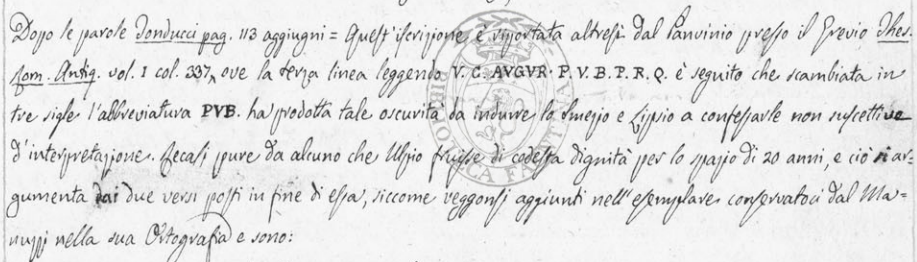 Dopo le parole Donducci pag. 113 aggiugni = Quest'iscrizione è riportata altresì dal Panvinio presso il Grevio Thes.
Rom. Antiq. vol. I col. 337, ove la terza linea leggendo V. C. AVGVR. P. V. B. P. R. Q. è seguito che scambiata in
tre sigle l'abbreviatura PVB. ha prodotta tale oscurità da indurre lo Smezio e Lipsio a confessarle non suscettive
d'interpretazione. Recasi pure da alcuno che Ulpio fruisse di codesta dignità per lo spazio di 20 anni, e ciò si ar=
gumenta dai due versi posti in fine di essa, siccome veggonsi aggiunti nell'esemplare conservatoci dal Ma=
nuzzi nella sua Ortografia e sono: